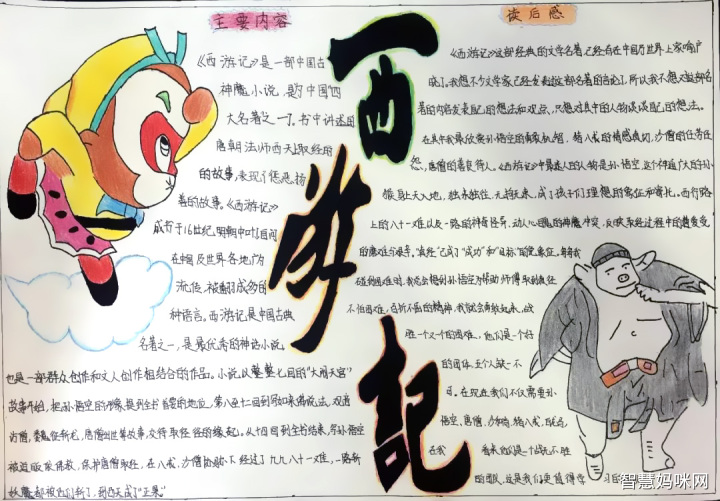 主要内容
《西游记》是一部中国古
神魔小说，是为中国"四
大名著之一"。书中讲述的
唐朝法师西天取经的
的故事，表现了惩恶扬
善的故事。《西游记》
成书于16世纪明朝中叶，自问
在中国及世界各地广为
流传，被翻成多
种语言。西游记是中国古典
名著之一，是最优秀的神话小说，
也是一部群众创作和文人创作相结合的作品。小说以整整七回的"大闹天宫"
故事开始，把孙悟空的形象提到全书首要的地位。第八至十二回写如来佛说法，观音
访僧，魏徵斩龙，唐僧出世等故事，交待取经的缘起。从十四回到全书结束，写孙悟空
被迫皈依佛教，保护唐僧取经，在八戒，沙僧协助下经过了九九八十一难，一路斩
妖魔，到西天成了"正果"。
西游记
读后感
《西游记》这部经典的文学名著，已经有在中国乃世界上家喻户
晓了。我想不少文学家已经发表过这部名著的言论了，所以我不想对这部名
著的内容发表自己的想法和观点，只想对其中的人物谈谈自己的想法。
在其中我最欣赏孙悟空的勇敢机智，猪八戒的情感真切，沙僧的任劳任
怨，唐僧的善良待人。《西游记》中最迷人的人物是孙悟空，这个神通广大的孙
猴身上天入地，独来独往，无拘无束，成了孩子们理想的象征和寄托。西行路
上的八十一难以及一路的神奇怪异，动人心魄的神魔冲突，反映取经过程中的遭受
的磨难与艰辛。"真经"已成了"成功"和"目标"的象征。每当我
碰到困难时，我总会想到孙悟空为帮助师傅取到真经
不怕困难，百折不屈的精神，我就会勇敢起来，战
胜一个又一个的困难。他们是一个好
的团体，五个人缺一不
可。在现在我们不仅需要孙
悟空，唐僧，沙和尚，猪八戒，
在我看来他们是一个战无不胜
的团队，这是我们更值得学习
智慧妈咪网